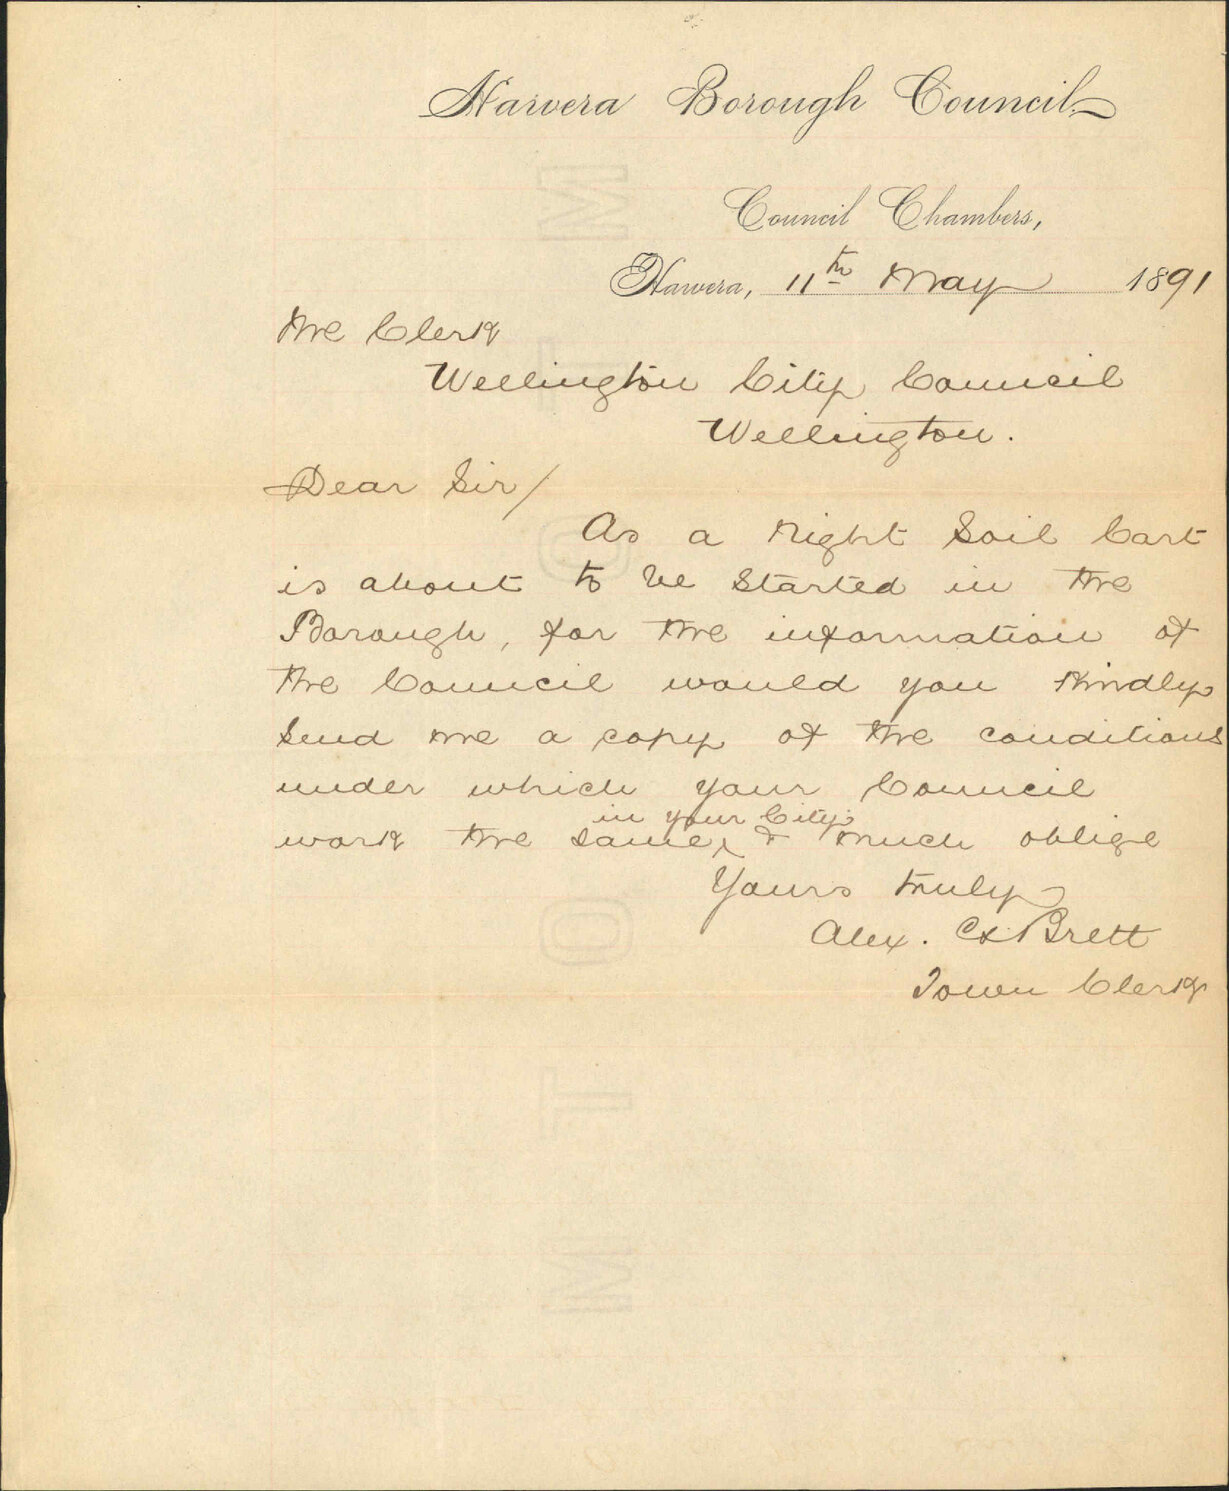 Hawera Borough Council
Council Chambers,
Hawera, 11th May 1891
The Clerk
Wellington City Council
Wellington.
Dear Sir/
As a Night Soil Cart
is about to be started in the
Borough, for the information of
the Council would you kindly
send me a copy of the conditions
under which your Council
in your City
work the same, & much oblige
Yours truly
Alex. Brett
Town Clerk